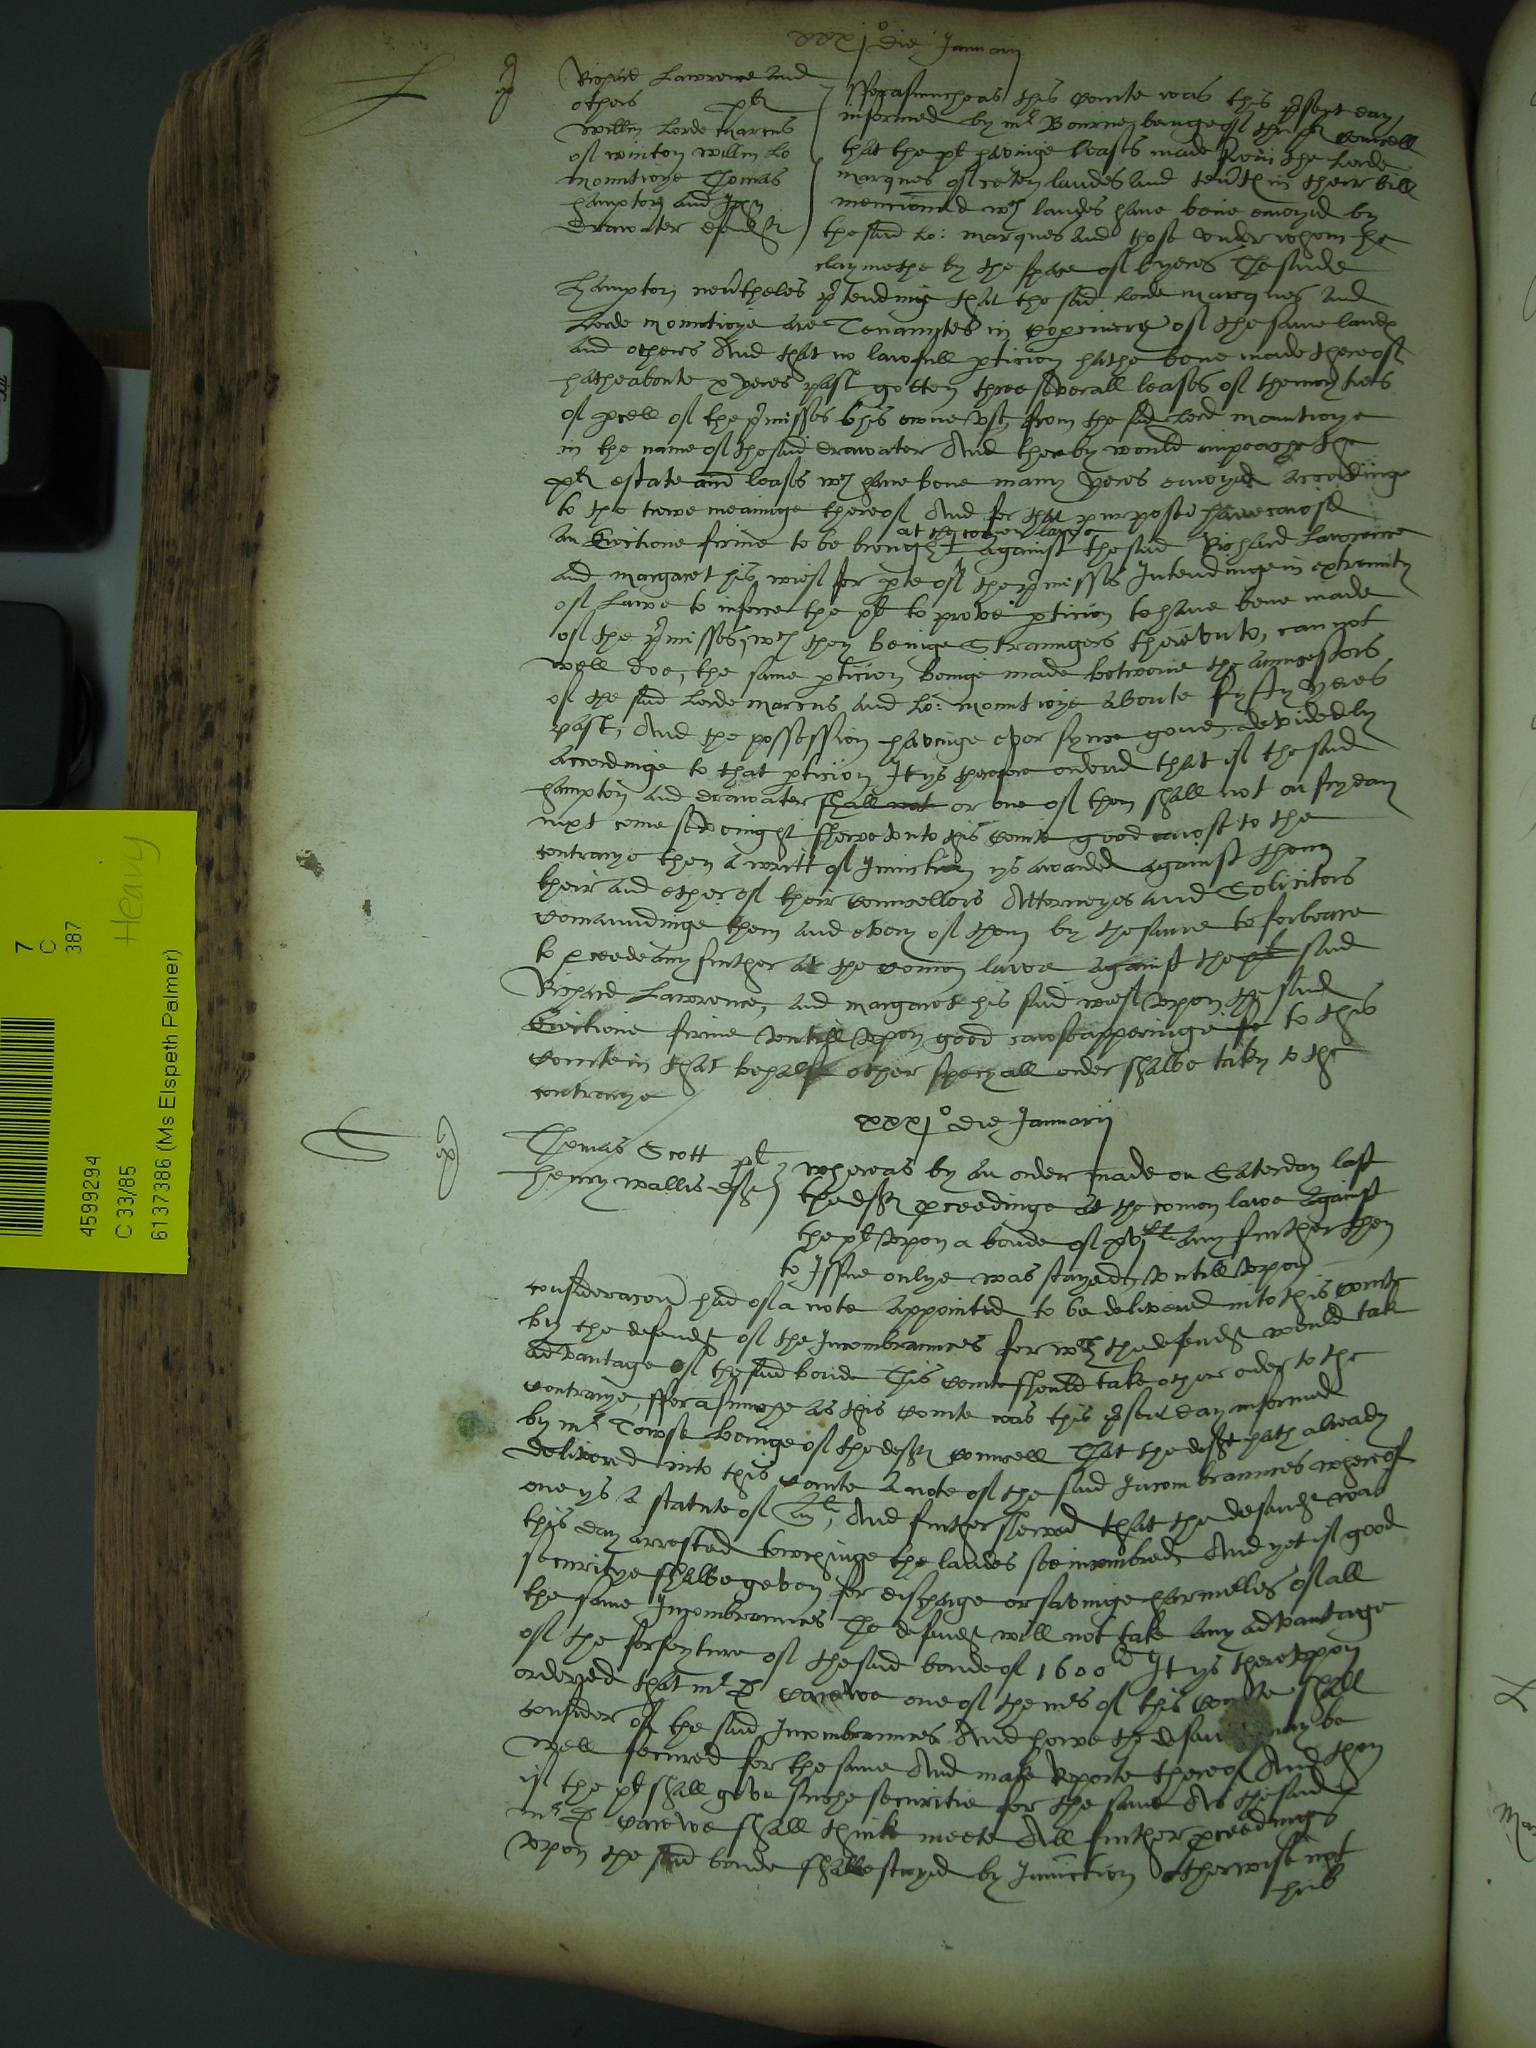 xxxj° die Januarij
Richard Lawrence and
others plt
Willm Lorde Marcus
of winton willm Lo
mountioye Thomas
hampton and John
Drawater defendtes
fforasmucheas this Courte was this present day
informed by mr Bourne beinge of the plt councell
that the plt havinge leases made from the Lorde
marques of certen landes and tents in their bill
mencioned wch landes have bene enioyed by
the said Lo: marques and those under whom he
claymethe by the space of l yeres The saide
Hampton nevertheles pretending that the said Lorde marques and
Lorde mountioye are Tenauntes in copercinery of the same landes
and others And that no lawfull particion hathe bene made thereof
hathe aboute x yeres past gotten three severall leases of the moyties
of parcell of the premisses to his owne use from the said Lord mountioye
in the name of the said drawater And thereby would impeache the
plts estate and leases wch have bene many yeres enioyed accordinge
to the trewe meaninge thereof And for that purpose have caused
at the comen lawe
an Eiectione firme to be brought against the said Richard Lawrence
and margaret his wief for parte of the premisses Intendinge in extremity
of Lawe to inforce the plt to prove particion to have bene made
of the premisses, wch they beinge Straungers thereunto, can not
well doe, the same particion beinge made betwene the auncestors
of the said Lorde marcus and Lo: mountioye aboute fyfty yeres
past, And the possession havinge ever synce gone devidedly
accordinge to that particion It ys therefore ordered that if the said
hampton and drawater shall not or one of them shall not on fryday
next come sevenight shewe unto this Courte good cause to the
contrarye then a writt of Iniunction ys awarded against them
their and either of their counsellors Attorneyes and Solicitors
comaundinge them and every of them by the same to forbeare
to proceede any further at the comon lawe against the plt said
Richard Lawrence, and margaret his said wief upon the said
Eiectione firme untill upon good cause apperinge to this
Courte in that behalf other specyall order shalbe taken to the
contrarye
xxxj° die Januarij
Thomas Scott plt
Henry wallis deft
whereas by an order made on Saterday last
the defts proceedinge at the comon lawe against
the plt upon a bonde of any further then
to Issue onlye was stayed, untill upon
consideracon had of a note appointed to be delivered into this courte
by the defendt of the Incombraunces for wch the defendt would take
advantage of the said bonde This courte should take other order to the
contrarye, fforasmuche as this courte was this present day informed
by mr Towse beinge of the defts councell That the deft hath already
delivered into this courte a note of the said Incombraunces whereof
one ys a statute of And further shewed that the defendt was
this day arrested towchinge the landes soe incombred And yet if good
securitye shalbe geven for discharge or savinge harmelles of all
the same Incombraunces The defendt will not take any advantage
of the forfeyture of the said bonde of 1600li It ys thereupon
ordered that mr D Carewe one of the mrs of this Courte shall
consider of the said Incombraunces And howe the defendt may be
well secured for the same And make reporte thereof And then
if the plt shall geve suche securitie for the same As the said
mr D Carewe shall think meete All further proceedings
upon the said bonde shalbe stayed by Iniunction otherwise not
4599294
C 33/85
6137386 (Ms Elspeth Palmer)
7
C
387
Heavy